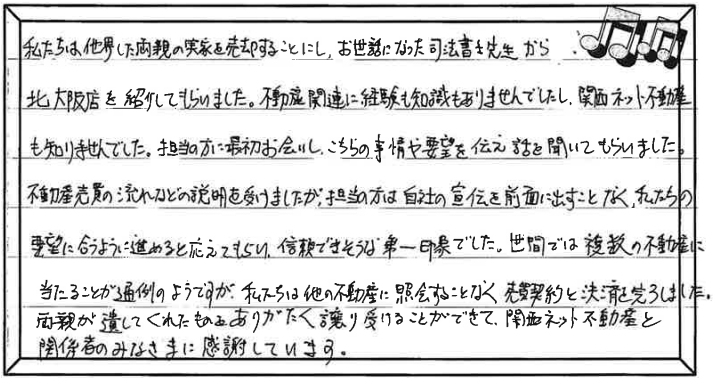 私たちは、他界した両親の実家を売却することにし、お世話になった司法書士先生から
北大阪店を紹介してもらいました。不動産関連に経験も知識もありませんでしたし、関西ネット不動産
も知りませんでした。担当の方に最初お会いし、こちらの事情や要望を伝え話を聞いてもらいました。
不動産売買の流れなどの説明を受けましたが、担当の方は自社の宣伝を前面に出すことなく、私たちの
要望に合うように進めると応えてもらい、信頼できそうな第一印象でした。世間では複数の不動産に
当たることが通例のようですが、私たちは他の不動産に照会することなく売買契約と決済を完了しました。
両親が遺してくれたものをありがたく譲り受けることができて、関西ネット不動産と
関係者のみなさまに感謝しています。